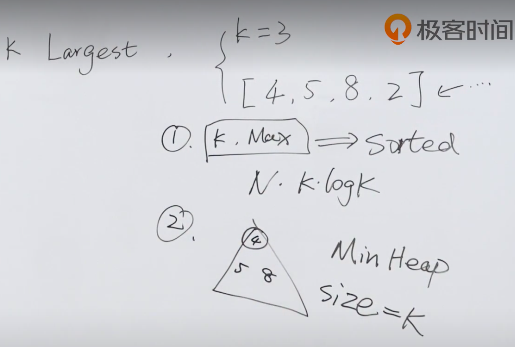 极客时间
K Largest . k = 3
[4, 5, 8, 2] ← ....
①. K. Max ⇒ Sorted
N · K · logK
②.
4
5 8
Min Heap
size = K